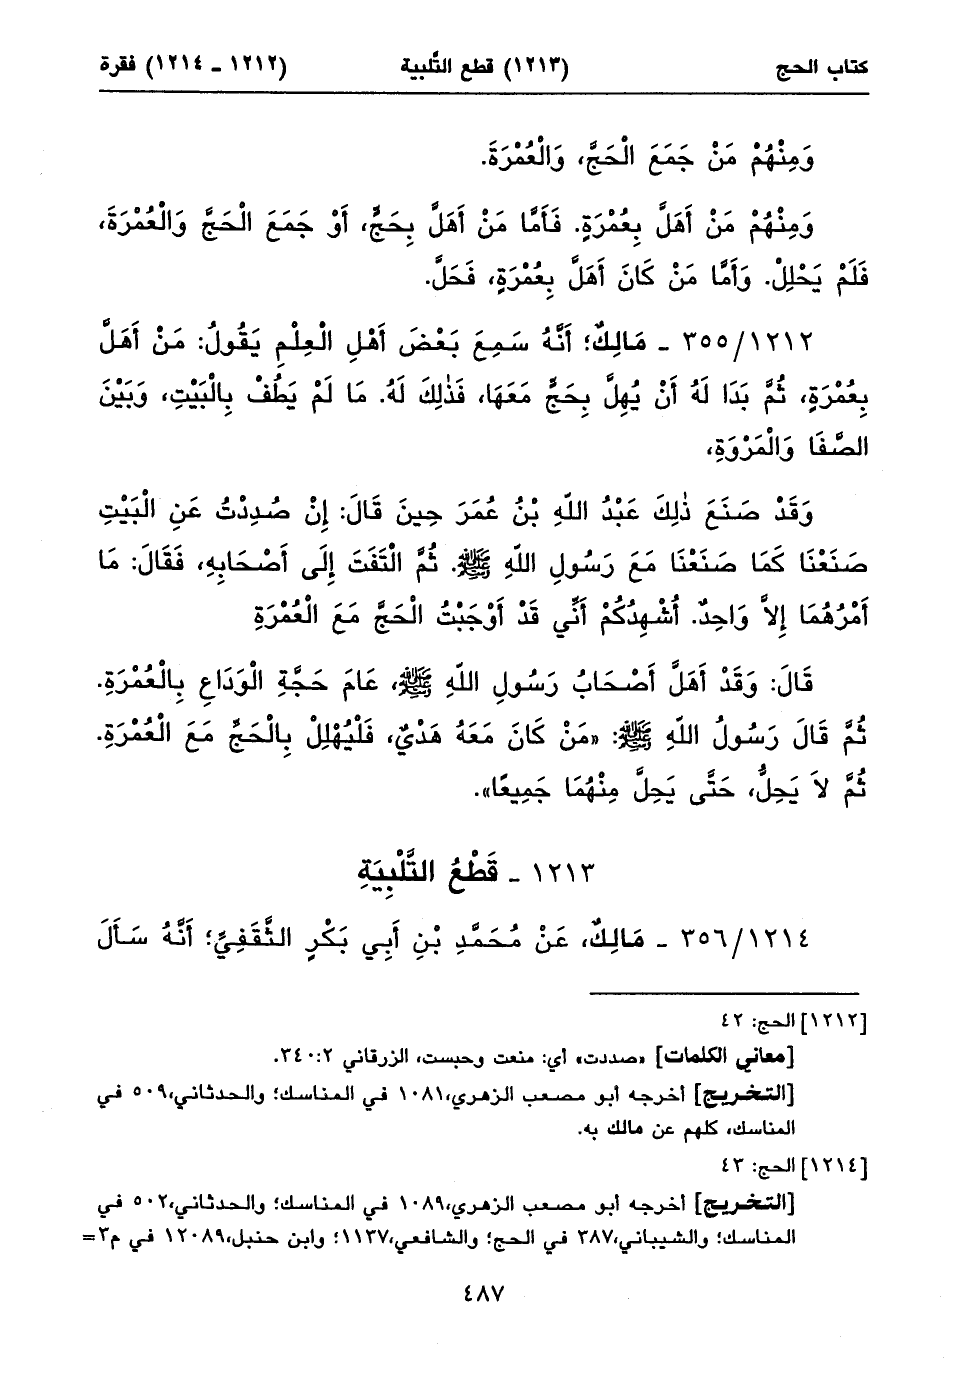 كتاب الحج (١٢١٣) قطع التَّلبية (١٢١٢ ـ ١٢١٤) فقرة
وَمِنْهُمْ مَنْ جَمَعَ الْحَجَّ، وَالْعُمْرَةَ.
وَمِنْهُمْ مَنْ أَهَلَّ بِعُمْرَةٍ. فَأَمَّا مَنْ أَهَلَّ بِحَجٍّ، أَوْ جَمَعَ الْحَجَّ وَالْعُمْرَةَ،
فَلَمْ يَحْلِلْ. وَأَمَّا مَنْ كَانَ أَهَلَّ بِعُمْرَةٍ، فَحَلَّ.
٣٥٥/١٢١٢ ـ مَالِكٌ؛ أَنَّهُ سَمِعَ بَعْضَ أَهْلِ الْعِلْمِ يَقُولُ: مَنْ أَهَلَّ
بِعُمْرَةٍ، ثُمَّ بَدَا لَهُ أَنْ يُهِلَّ بِحَجٍّ مَعَهَا، فَذٰلِكَ لَهُ. مَا لَمْ يَطُفْ بِالْبَيْتِ، وَبَيْنَ
الصَّفَا وَالْمَرْوَةِ،
وَقَدْ صَنَعَ ذٰلِكَ عَبْدُ اللّهِ بْنُ عُمَرَ حِينَ قَالَ: إِنْ صُدِدْتُ عَنِ الْبَيْتِ
صَنَعْنَا كَمَا صَنَعْنَا مَعَ رَسُولِ اللّهِ ﷺ. ثُمَّ الْتَفَتَ إِلَى أَصْحَابِهِ، فَقَالَ: مَا
أَمْرُهُمَا إِلاَّ وَاحِدٌ. أُشْهِدُكُمْ أَنِّي قَدْ أَوْجَبْتُ الْحَجَّ مَعَ الْعُمْرَةِ
قَالَ: وَقَدْ أَهَلَّ أَصْحَابُ رَسُولِ اللّهِ ﷺ، عَامَ حَجَّةِ الْوَدَاعِ بِالْعُمْرَةِ.
ثُمَّ قَالَ رَسُولُ اللّهِ ﷺ: «مَنْ كَانَ مَعَهُ هَدْيٌ، فَلْيُهْلِلْ بِالْحَجِّ مَعَ الْعُمْرَةِ.
ثُمَّ لاَ يَحِلُّ، حَتَّى يَحِلَّ مِنْهُمَا جَمِيعًا».
١٢١٣ ـ قَطْعُ التَّلْبِيَةِ
٣٥٦/١٢١٤ ـ مَالِكٌ، عَنْ مُحَمَّدِ بْنِ أَبِي بَكْرٍ الثَّقَفِيِّ؛ أَنَّهُ سَأَلَ
[١٢١٢] الحج: ٤٢
[معاني الكلمات] «صددت» أي: منعت وحبست، الزرقاني ٣٤٠:٢.
[التخريج] أخرجه أبو مصعب الزهري، ١٠٨١ في المناسك؛ والحدثاني، ٥٠٩ في
المناسك، كلهم عن مالك به.
[١٢١٤] الحج: ٤٣
[التخريج] أخرجه أبو مصعب الزهري، ١٠٨٩ في المناسك؛ والحدثاني، ٥٠٢ في
المناسك؛ والشيباني، ٣٨٧ في الحج؛ والشافعي، ١١٣٧؛ وابن حنبل، ١٢٠٨٩ في م٣=
٤٨٧